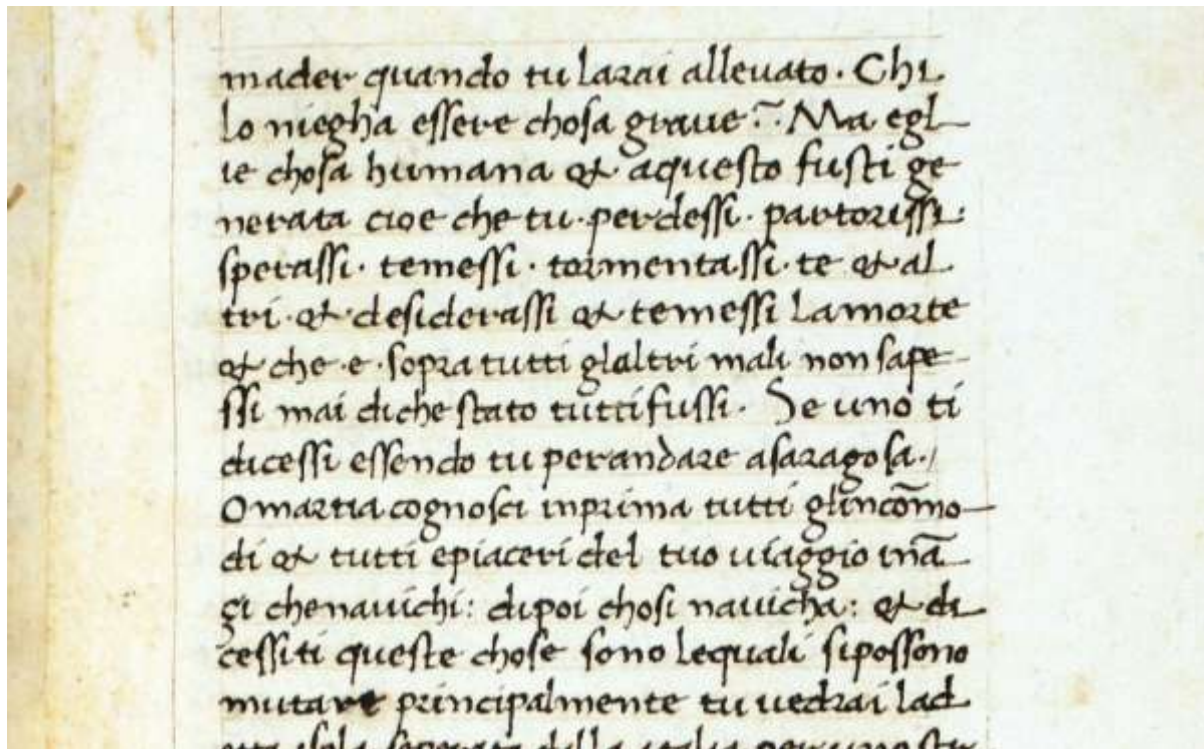 mader quando tu larai alleuato. Chi
lo niegha essere chosa graue? Ma egl
ie chosa humana & aquesto fusti ge
nerata cioe che tu·perdessi·partorissi:
sperassi·temessi·tormentassi·te & al
tri·& desiderassi & temessi lamorte
& che·e·sopra tutti glaltri mali non sape
ssi mai diche stato tutti fussi. Se uno ti
dicessi essendo tu perandare asaragosa./
O martia cognosci inprima tutti glincōmo
di & tutti epiaceri del tuo uiaggio inā
çi chenauichi: dipoi chosi nauicha: & di
cessiti queste chose sono lequali sipossono
mutare principalmente tu uedrai lad
etta isola seperata dalla italia peruno